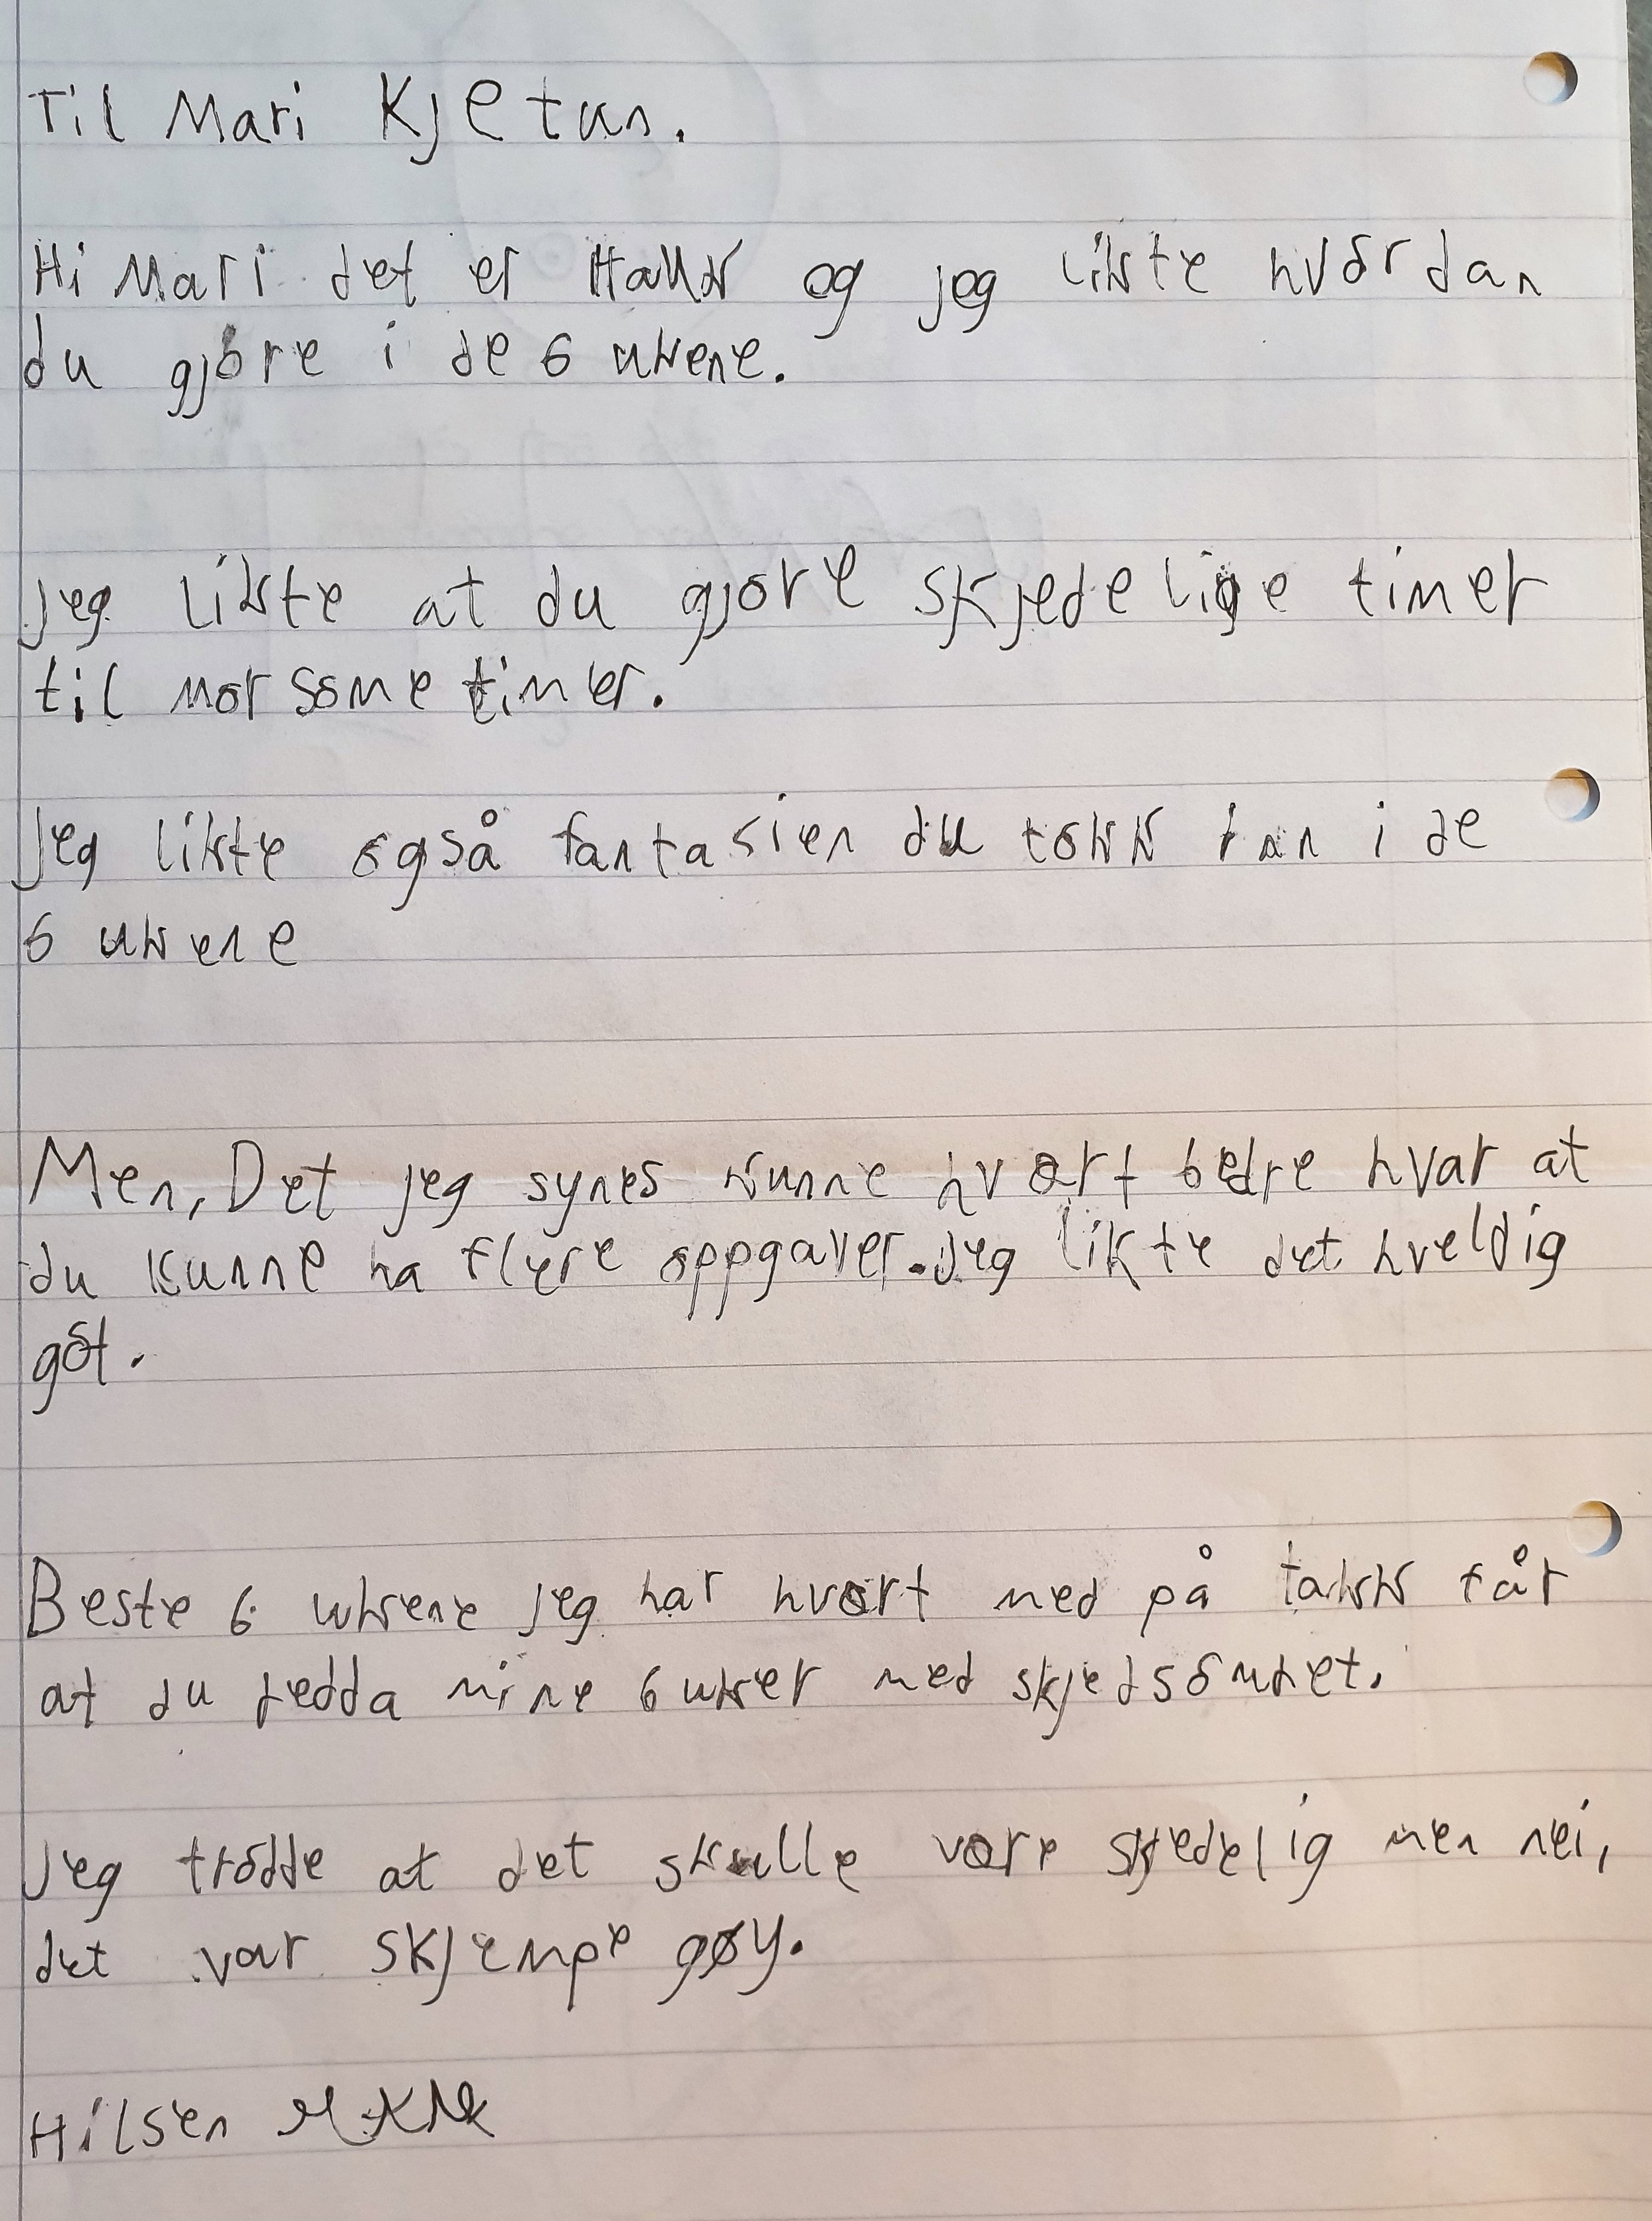 Til Mari Kjetun.
Hi Mari det er og jeg likte hvordan
du gjøre i de 6 ukene.
jeg likte at du gjøre skjedelige timer
til morsome timer.
jeg likte også fantasien du tokk inn i de
6 ukene
Men, Det jeg synes kunne hvært bedre hvar at
du kunne ha flere oppgaver. jeg likte det hveldig
got.
Beste 6 ukene jeg har hvært med på takk får
at du redda mine 6 uker med skjedsomhet.
Jeg trodde at det skulle være skjedelig men nei,
det var skjempe gøy.
Hilsen